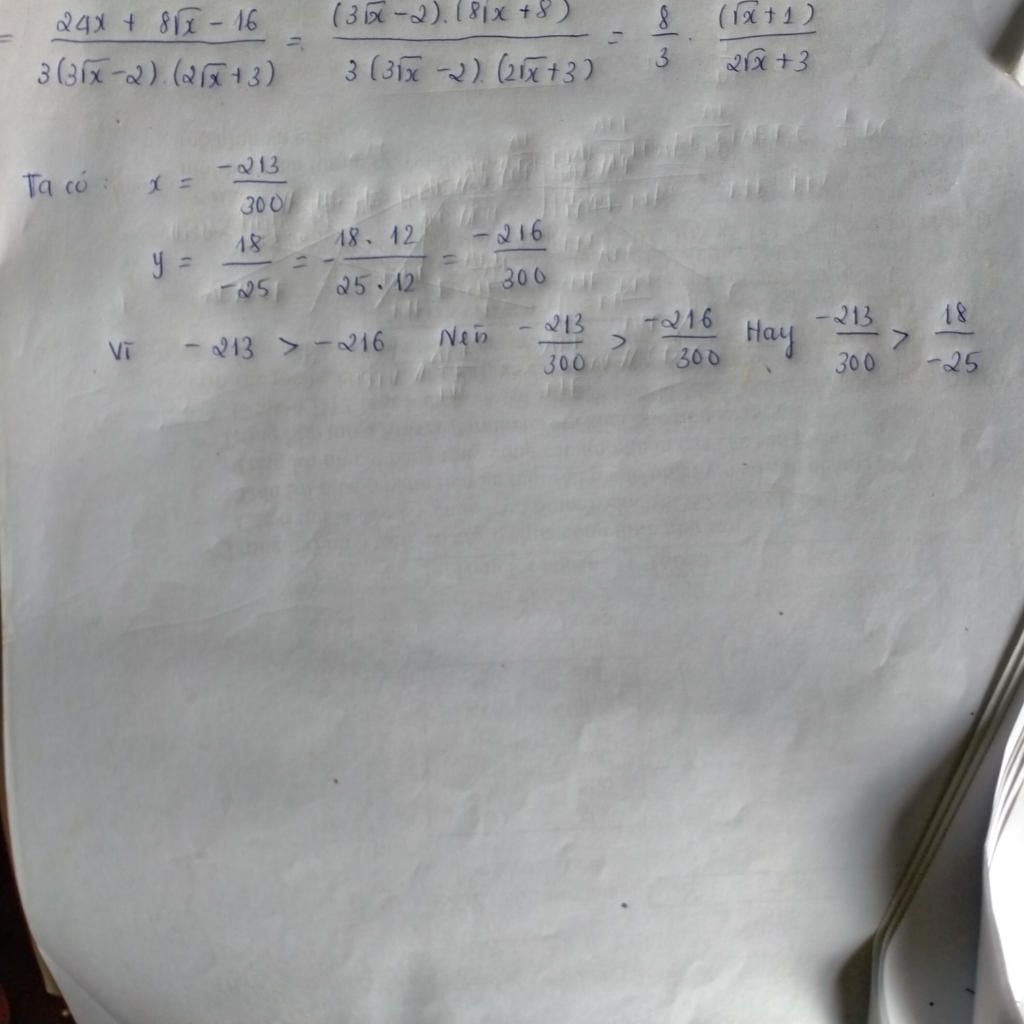 = \frac{24x + 8\sqrt{x} - 16}{3(3\sqrt{x} - 2).(2\sqrt{x} + 3)} = \frac{(3\sqrt{x} - 2).(8\sqrt{x} + 8)}{3(3\sqrt{x} - 2).(2\sqrt{x} + 3)} = \frac{8}{3} . \frac{(\sqrt{x} + 1)}{2\sqrt{x} + 3}
Ta có : x = \frac{-213}{300}
y = \frac{18}{-25} = -\frac{18.12}{25.12} = \frac{-216}{300}
Vì -213 > -216 Nên -\frac{213}{300} > \frac{-216}{300} Hay \frac{-213}{300} > \frac{18}{-25}